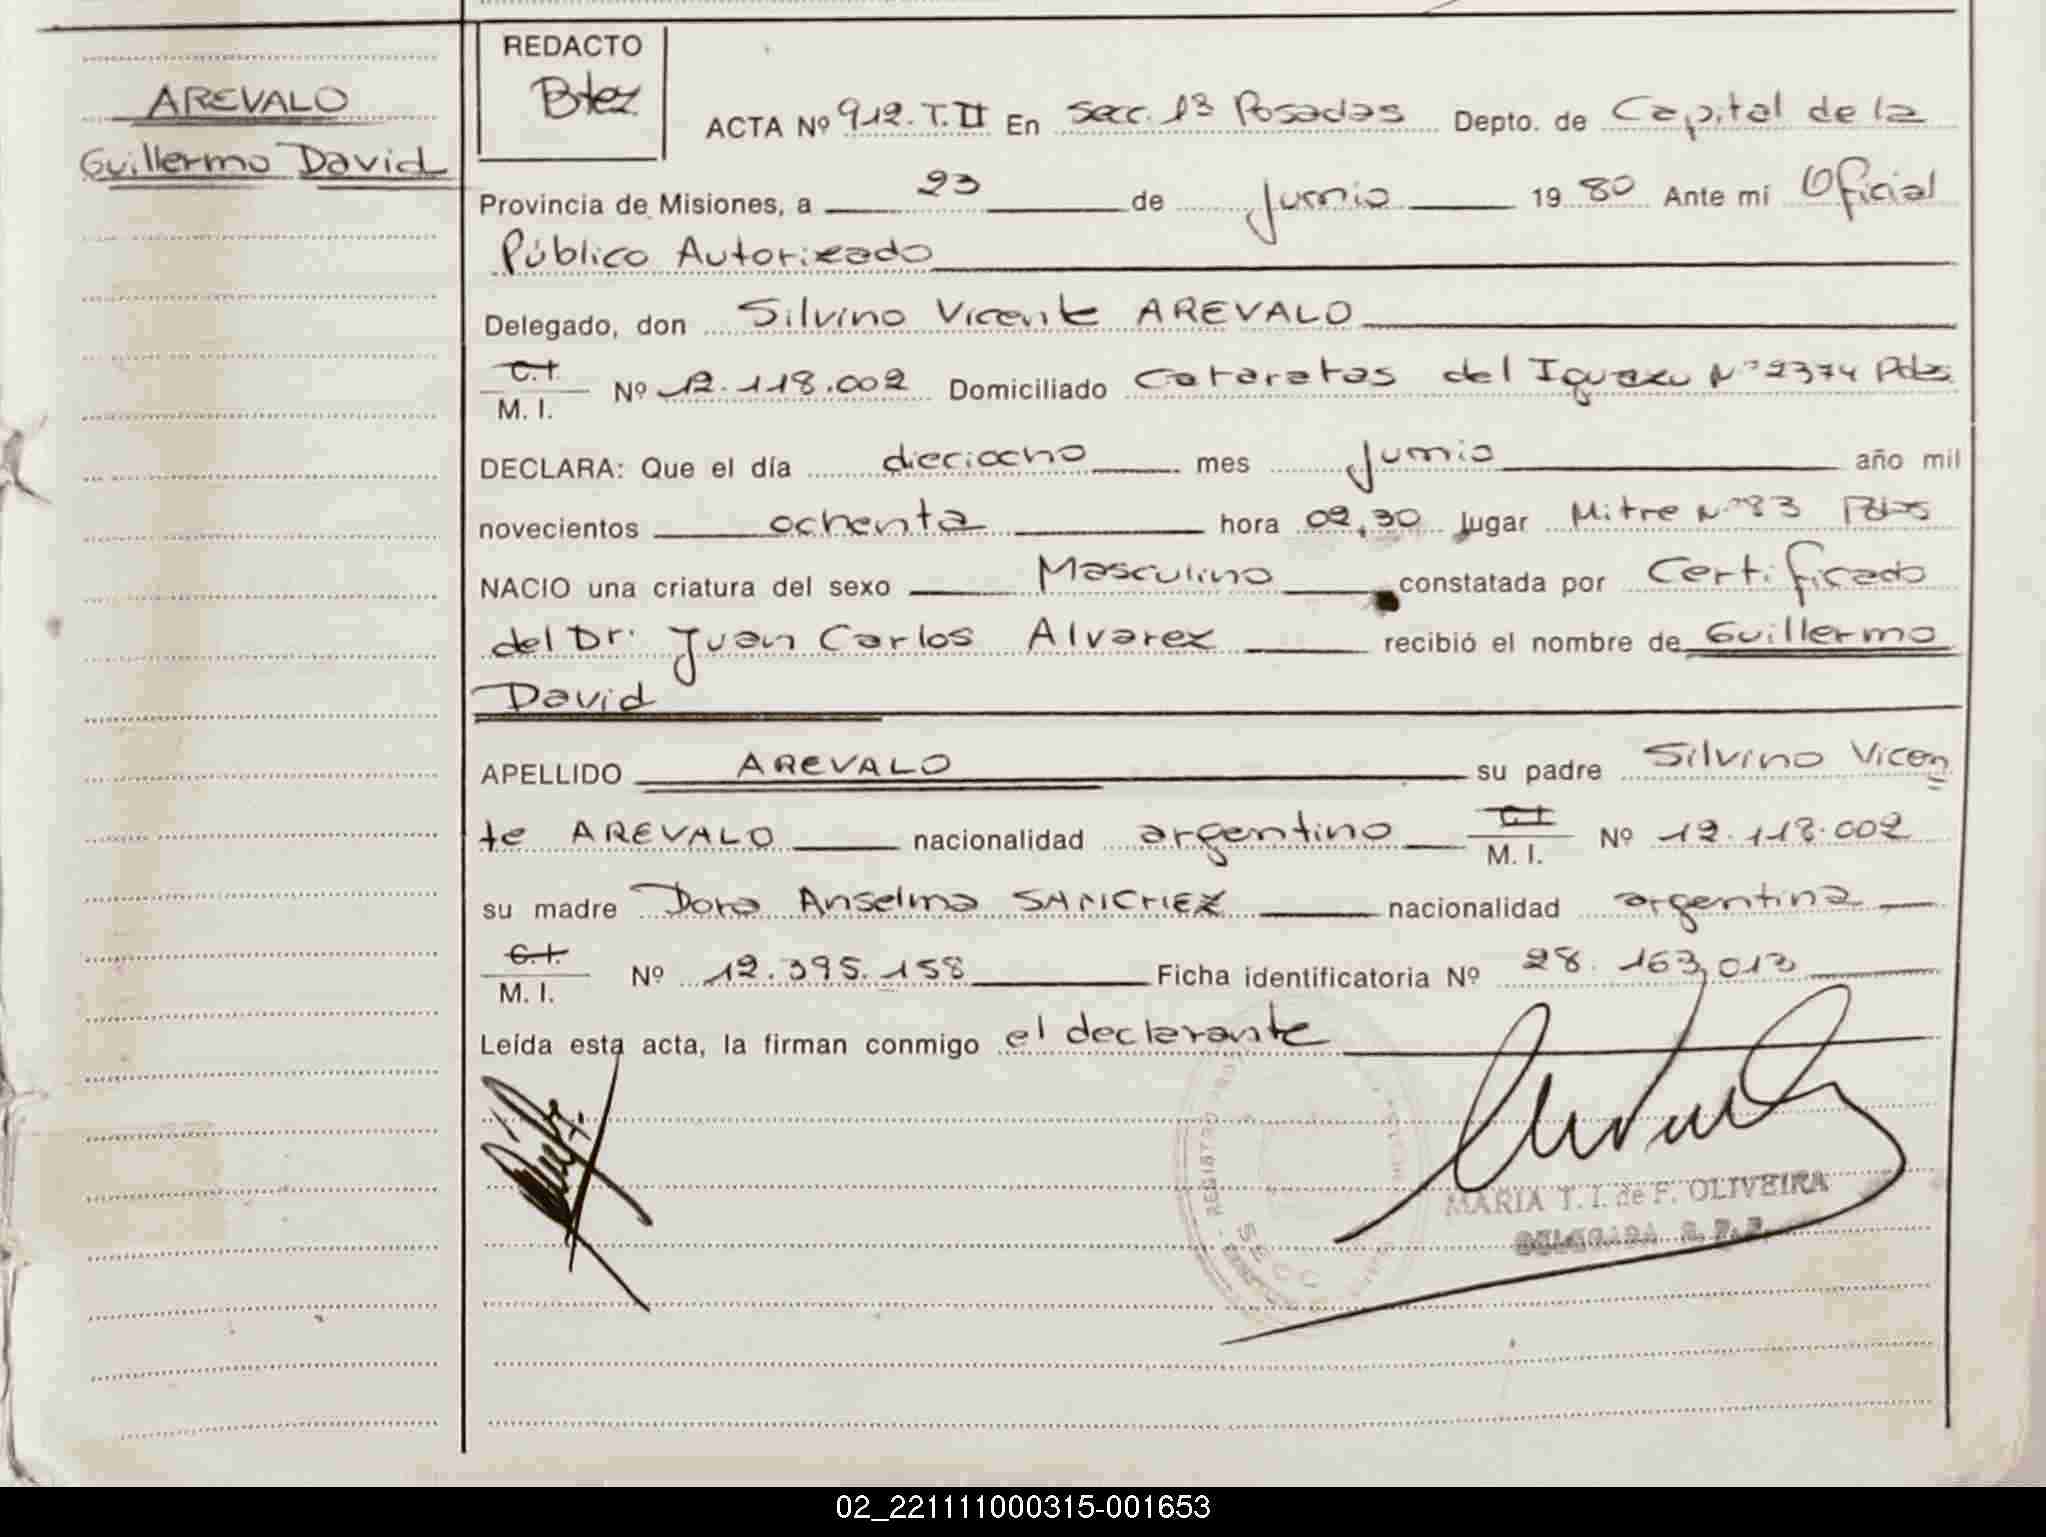 AREVALO
Guillermo David
REDACTO
Btez
ACTA Nº 912.T.II En secc. 1ª Posadas Depto. de Capital de la
Provincia de Misiones, a 23 de Junio 1980 Ante mí Oficial
Público Autorizado
Delegado, don Silvino Vicente AREVALO
C.I.
M. I. Nº 12.118.002 Domiciliado Cataratas del Iguazu Nº 2374 Pdas
DECLARA: Que el día dieciocho mes Junio año mil
novecientos ochenta hora 02,30 lugar Mitre Nº 83 Pdas
NACIO una criatura del sexo Masculino constatada por Certificado
del Dr. Juan Carlos Alvarez recibió el nombre de Guillermo
David
APELLIDO AREVALO su padre Silvino Vicen
te AREVALO nacionalidad argentino C.I. M. I. Nº 12.118.002
su madre Dora Anselma SANCHEZ nacionalidad argentina
C.I. M. I. Nº 12.395.158 Ficha identificatoria Nº 28.163,013
Leída esta acta, la firman conmigo el declarante
MARIA T. I. de F. OLIVEIRA
DELEGADA
02_221111000315-001653